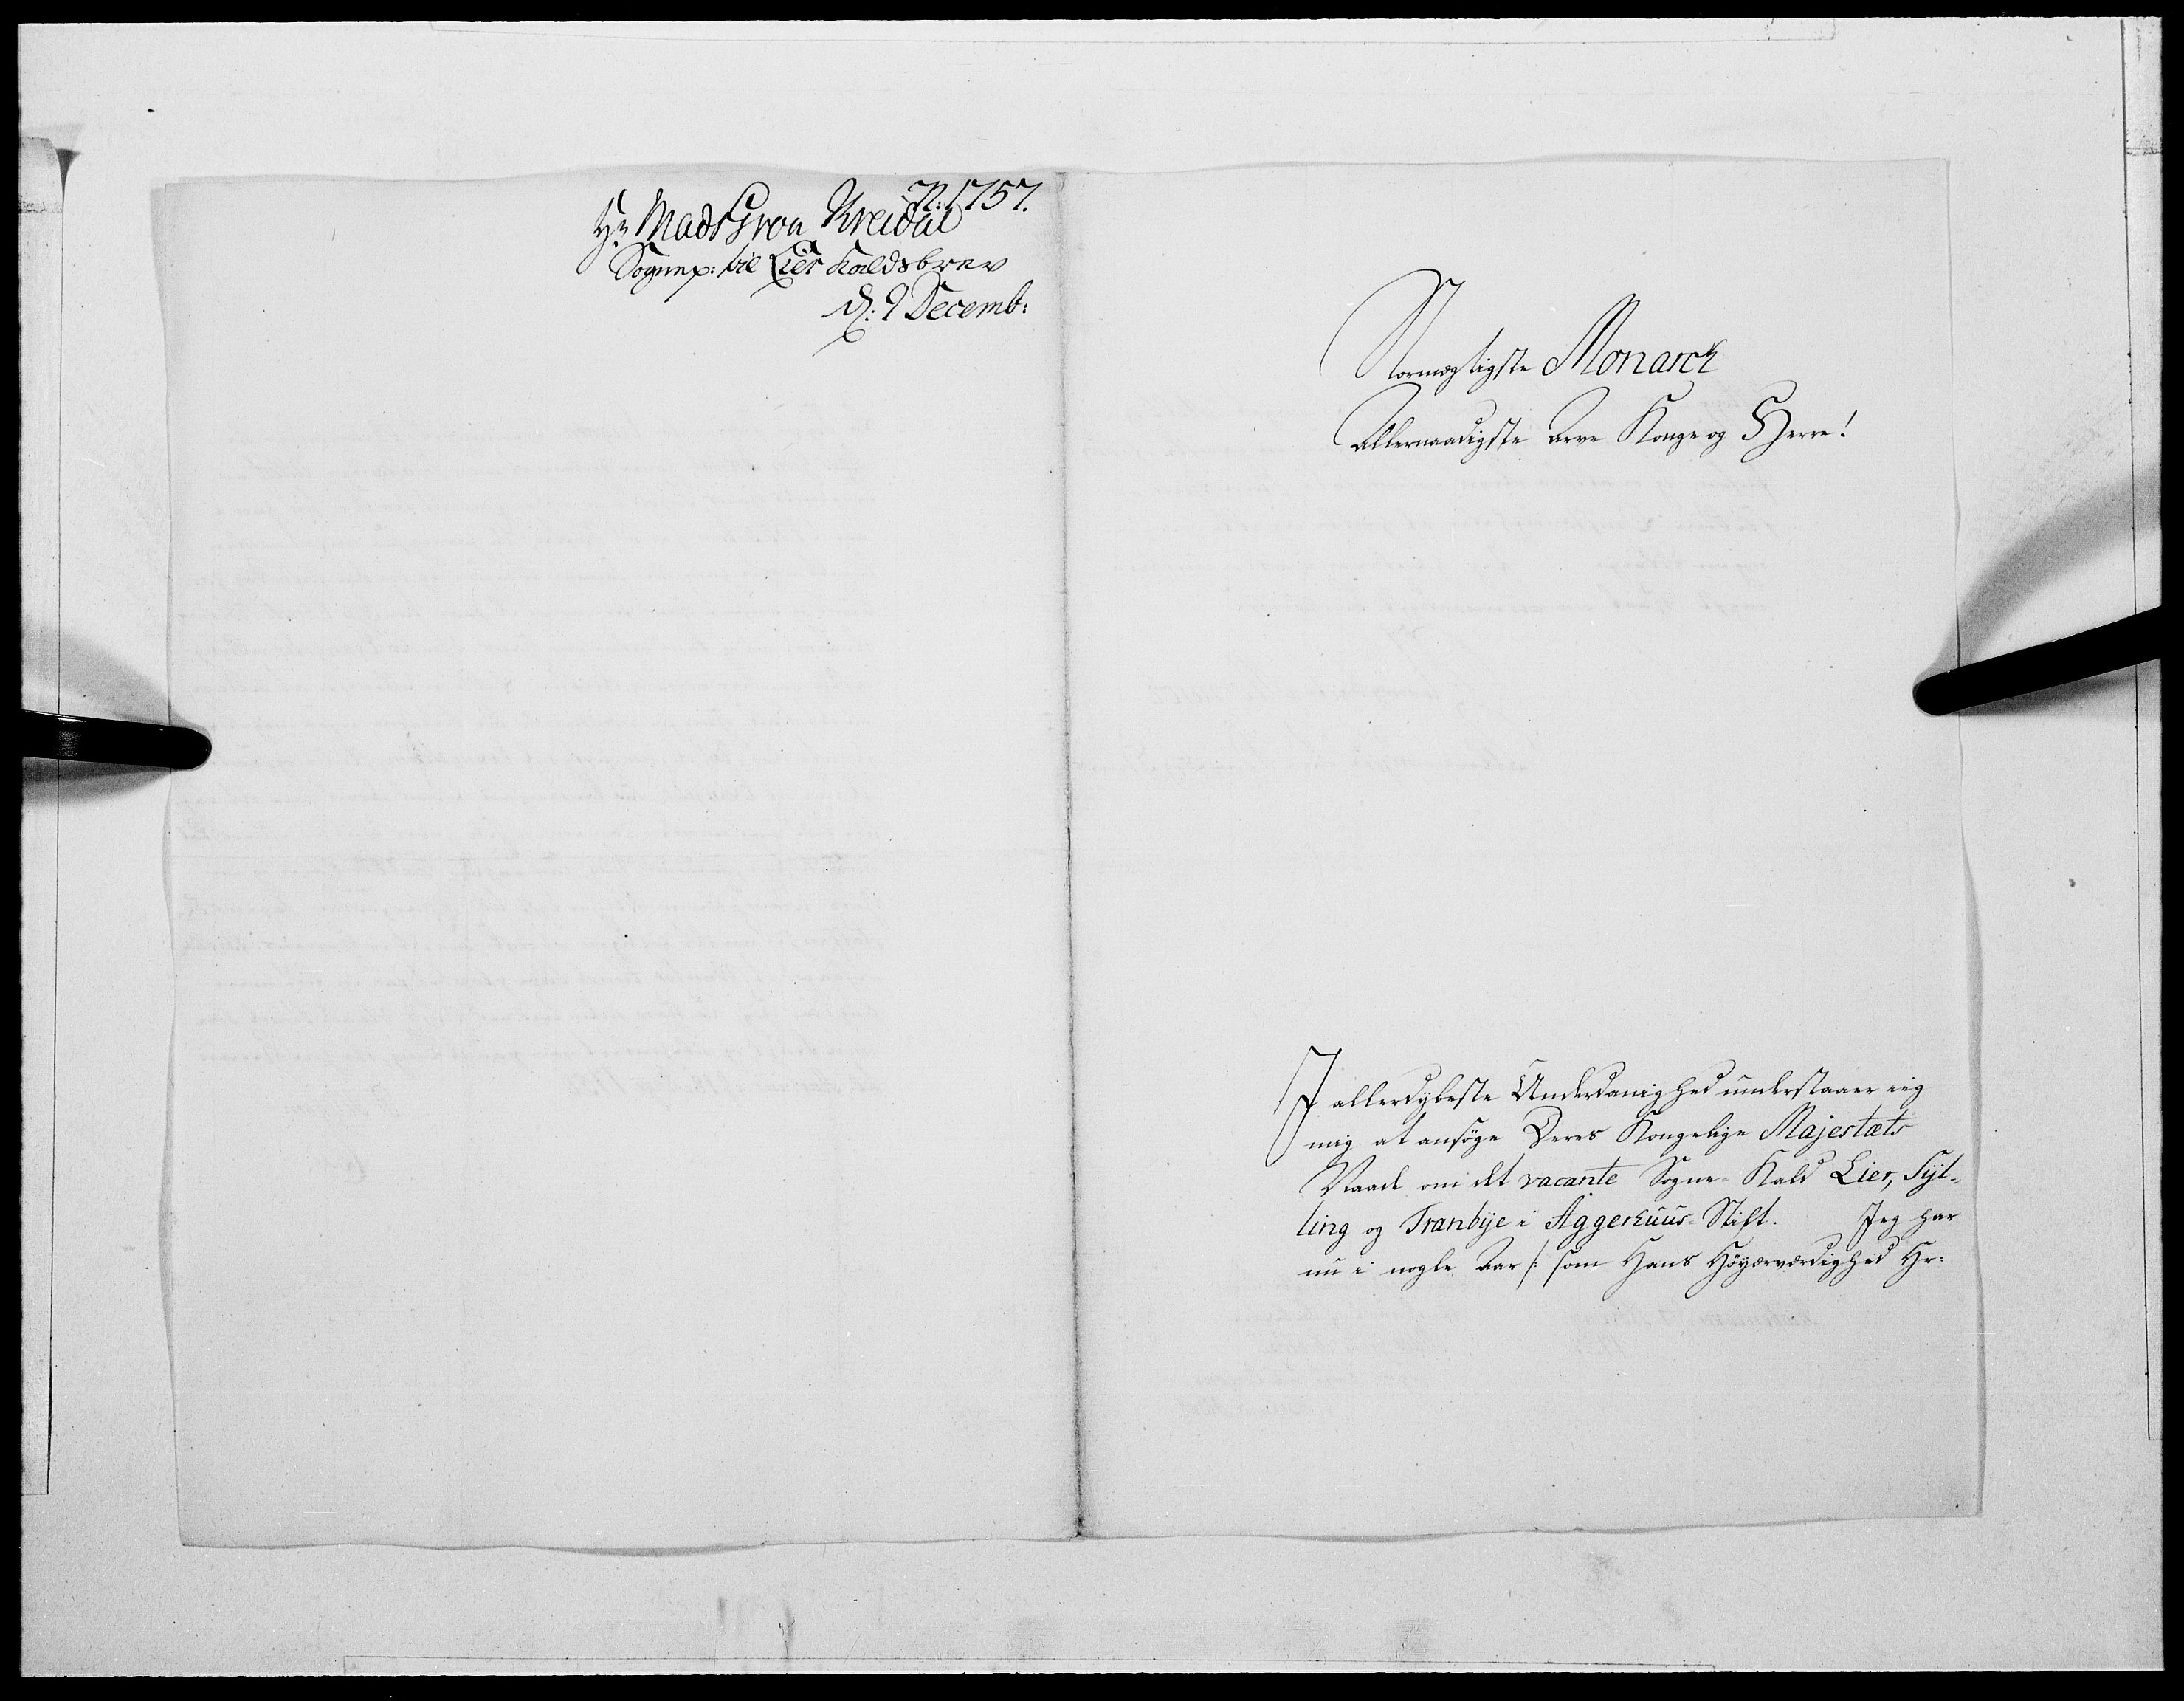 N: 1757.
Hr Mads Groa Kreidal
Sognep: til Lier Kaldsbrev
d: 9 Decemb:
Stormægtigste Monarck
Allernaadigste Arve Konge og Herre!
I allerdybeste Underdanighed understaaer ieg
mig at ansöge Deres Kongelige Majestæts
Naade om det vacante Sogne-Kald Lier, Syl-
ling og Tranbye i Aggerhuus-Stift. Jeg har
nu i nogle Aar /: som Hans Höyærværdighed Hr: